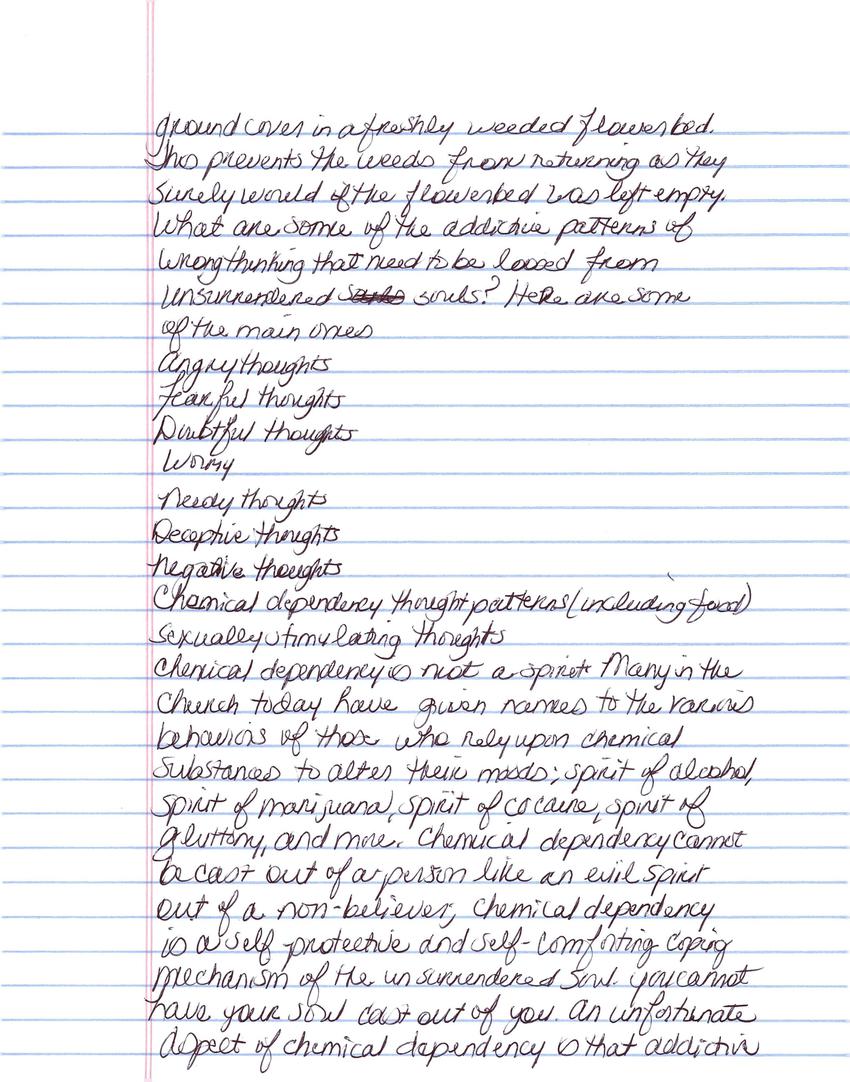 ground cover in a freshly weeded flowerbed.
This prevents the weeds from returning as they
surely would if the flowerbed was left empty.
What are some of the addictive patterns of
wrong thinking that need to be loosed from
unsurrendered souls? Here are some
of the main ones
angry thoughts
Fearful thoughts
Doubtful thoughts
Worry
needy thoughts
Deceptive thoughts
negative thoughts
Chemical dependency thought patterns (including food)
sexually stimulating thoughts
Chemical dependency is not a spirit Many in the
Church today have given names to the various
behaviors of those who rely upon chemical
substances to alter their moods; spirit of alcohol,
spirit of marijuana, spirit of cocaine, spirit of
gluttony, and more. Chemical dependency cannot
be cast out of a person like an evil spirit
out of a non-believer, Chemical dependency
is a self-protective and self-comforting coping
mechanism of the unsurrendered soul. you cannot
have your soul cast out of you. An unfortunate
aspect of chemical dependency is that addictive